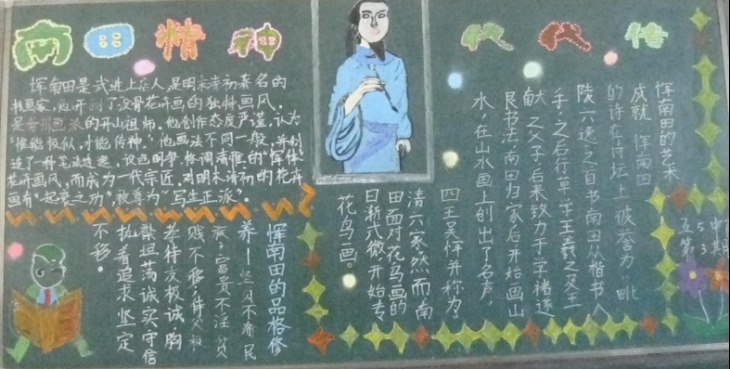 南田精神 代代传
恽南田是武进上店人,是明末清初著名的
书画家,他开创了没骨花卉画的独特画风,
是常州画派的开山祖师。他创作态度严谨,认为
"惟能极似,才能传神。"他画法不同一般,并创
造了一种笔法透逸、设色明净、格调清雅的"恽体"
花卉画风,而成为一代宗匠,对明末清初的花卉
画有"起衰之功",被尊为"写生正派"。
恽南田的艺术
成就 恽南田
的诗在诗坛上被誉为"毗
陵六逸"之首书南田从楷书入
手,之后行草学王羲之及王
献之父子后来致力于学褚遂
良书法,南田归家后开始画山
水,在山水画上创出了名声,
四王吴恽并称为"
清六家"然而南
田面对花鸟画的
日渐式微开始专
花鸟画。
恽南田的品格修
养—坚贞不 民
族,富贵不淫贫
贱不移,待人
善待友极诚胸
襟坦荡诚实守信
执着追求坚定
不移。
五5中
第3期